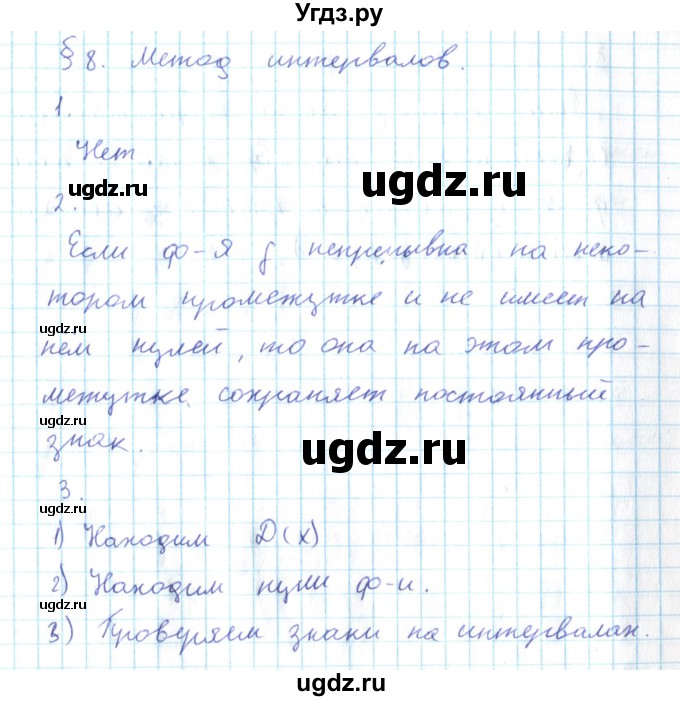 Угдз.ру
§ 8. Метод интервалов.
1.
Нет.
ugdz.ru
ugdz.ru
2.
Если ф-я f непрерывна на неко-
тором промежутке и не имеет на
ugdz.ru
нем нулей, то она на этом про-
межутке сохраняет постоянный
ugdz.ru
знак.
ugdz.ru
3.
ugdz.ru
1) Находим D(x)
2) Находим нули ф-и.
ugdz.ru
3) Проверяем знаки на интервалах.
ugdz.ru